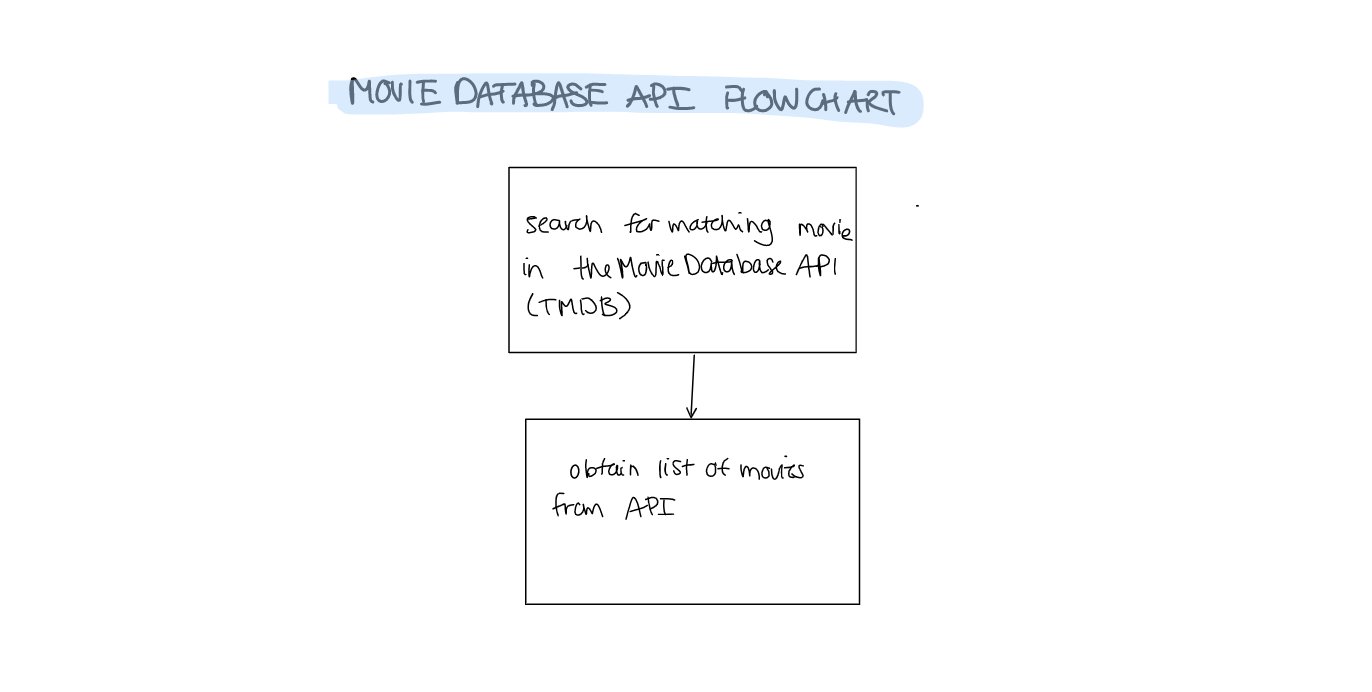 MOVIE DATABASE API FLOWCHART
search for matching movie
in the Movie Database API
(TMDB)
obtain list of movies
from API